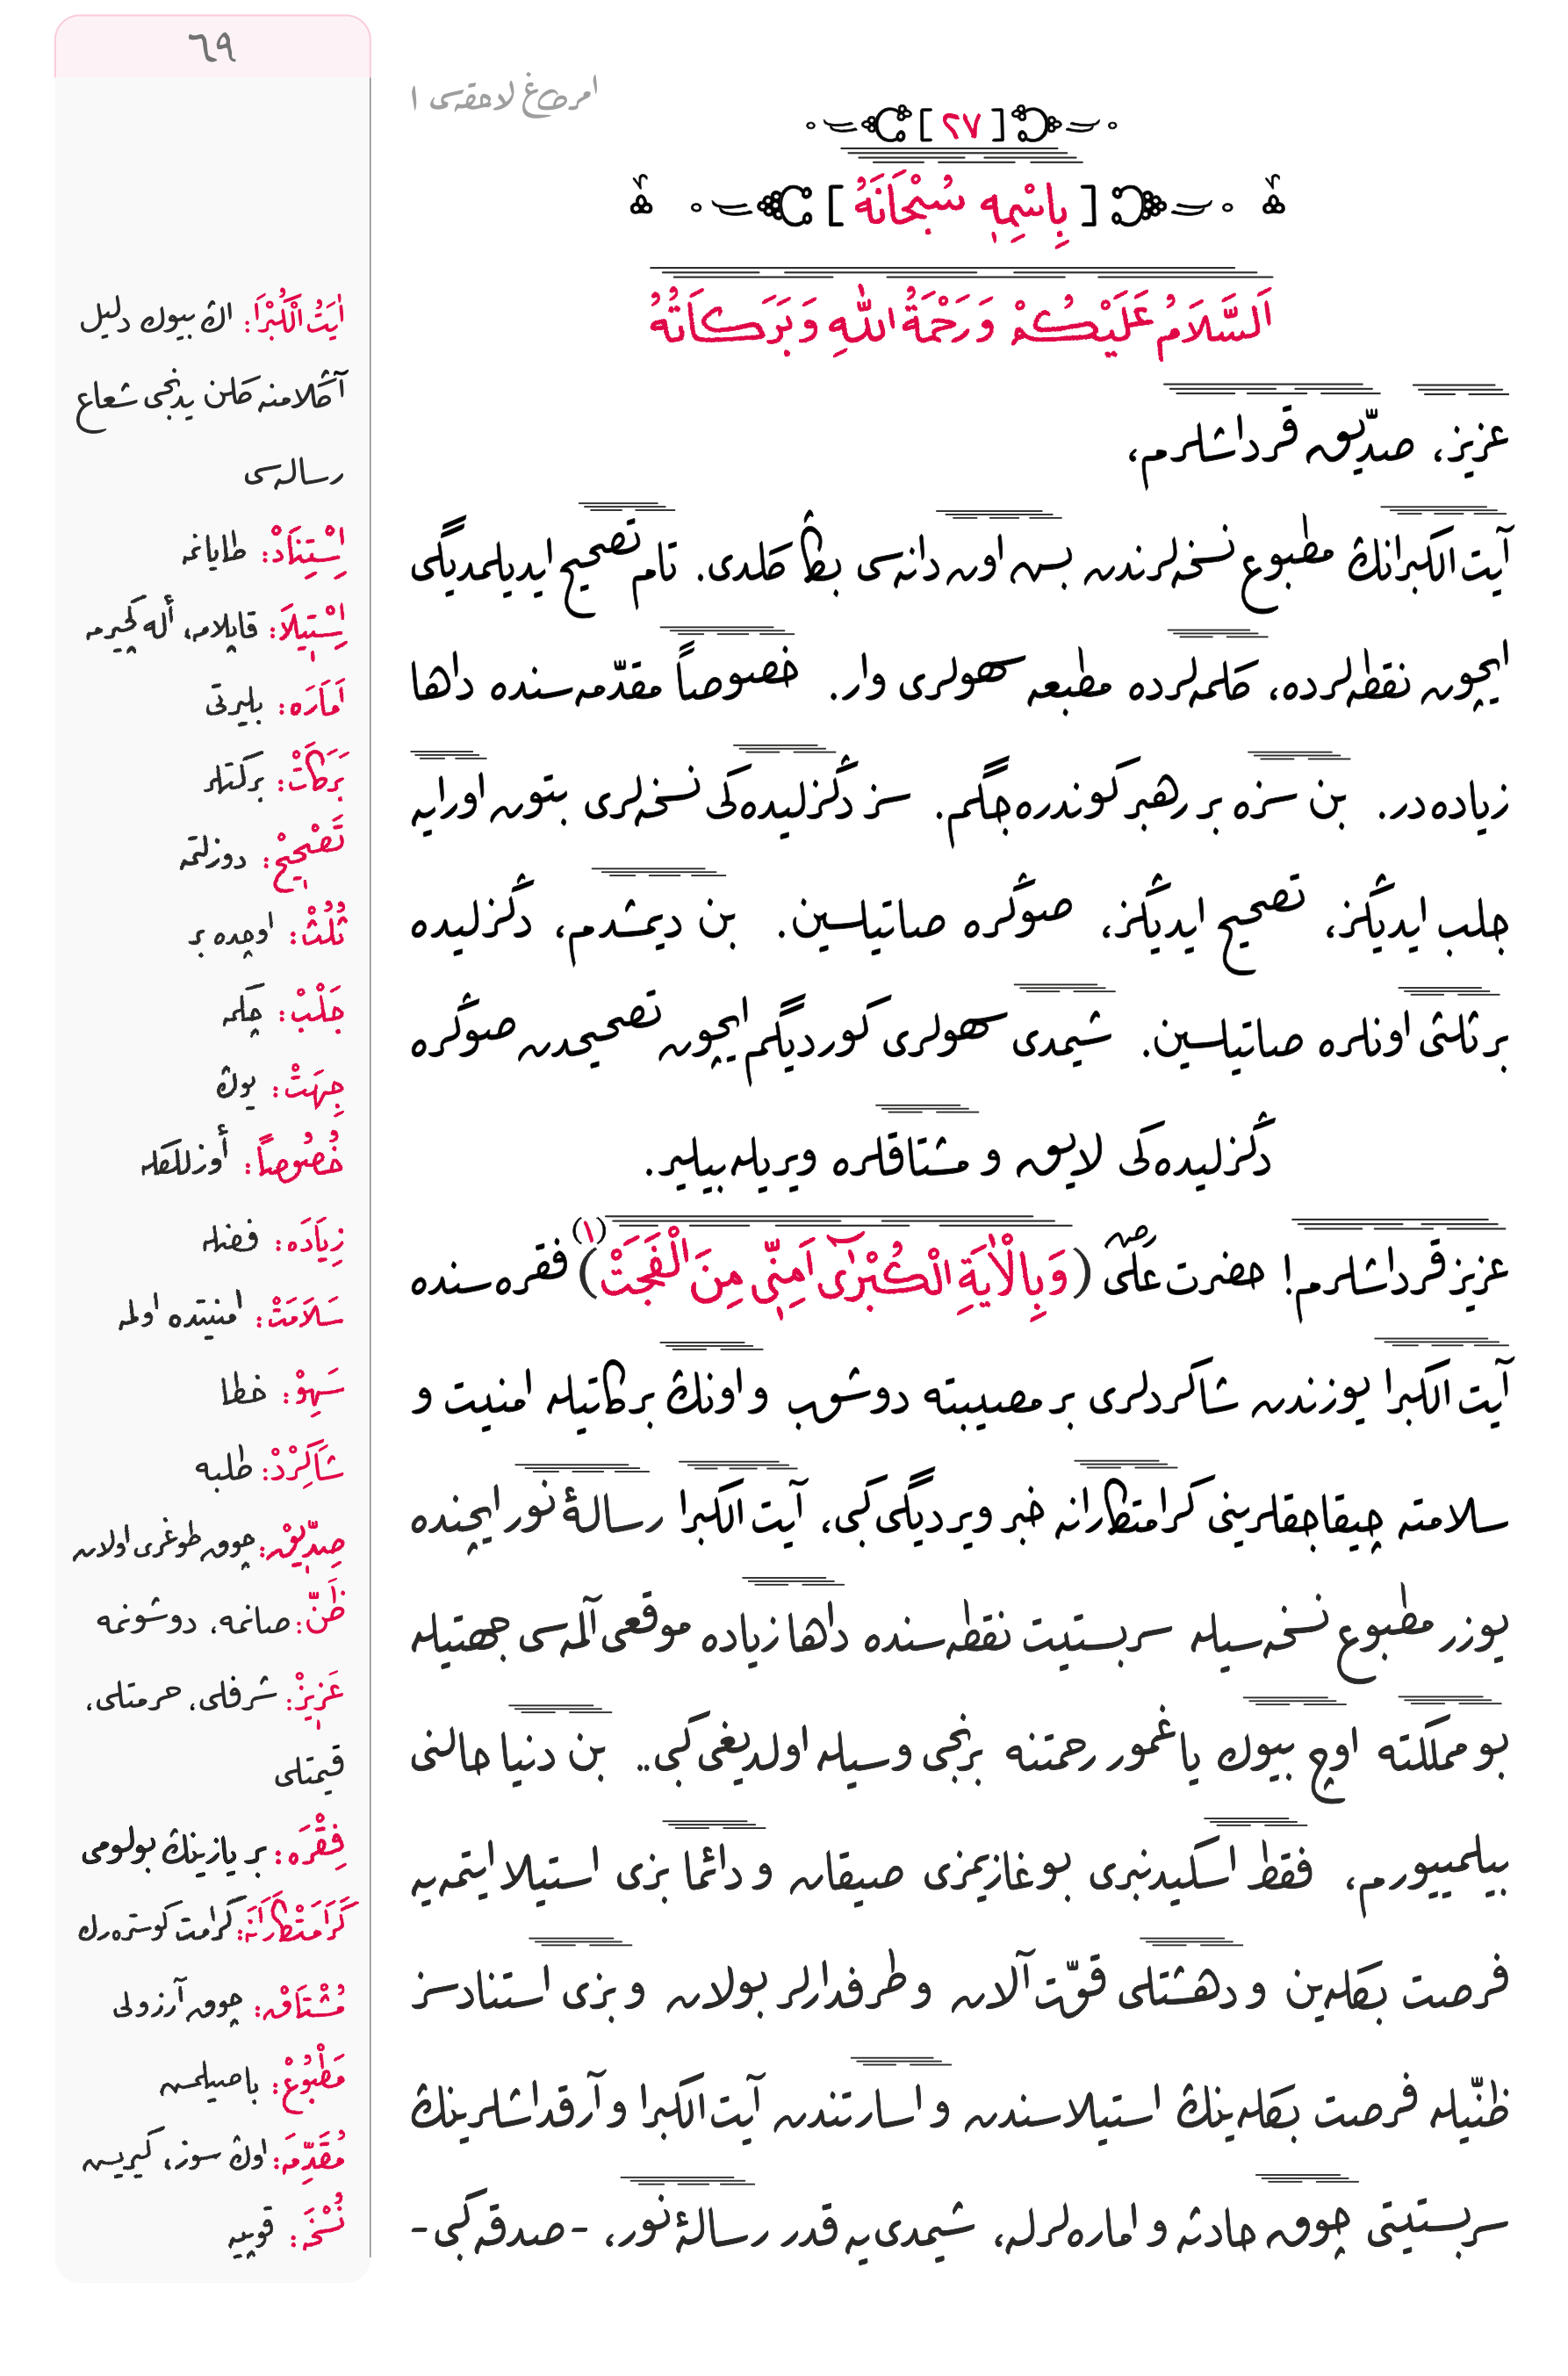 ٦٩
امیرطاغ لاحقه‌سی ١
[ ٢٧ ]
[ بِاسْمِهٖ سُبْحَانَهُ ]
اَلسَّلَامُ عَلَيْكُمْ وَرَحْمَةُ اللّٰهِ وَبَرَكَاتُهُ
عزیز، صدّیق قرداشلرم،
آیت الكبرانڭ مطبوع نسخه‌لرندن بش اون دانه‌سی بڭا كلدی. تام تصحیح ایدیلمدیگی
ایچون نقطه‌لرده، كلمه‌لرده مطبعه سهولری وار. خصوصاً مقدّمه‌سنده داها
زیاده‌در. بن سزه بر رهبر كوندره‌جگم. سز دڭزلیده‌كی نسخه‌لری بتون اورایه
جلب ایدیڭز، تصحیح ایدیڭز، صوڭره صاتیلسین. بن دیمشدم، دڭزلیده
بر ثلثی اونلره صاتیلسین. شیمدی سهولری كوردیگم ایچون تصحیحدن صوڭره
دڭزلیده‌كی لایق و مشتاقلره ویریله‌بیلیر.
عزیز قرداشلرم! حضرت علی (رض) (وَبِالْاٰيَةِ الْكُبْرٰى اَمِنّٖى مِنَ الْفَجَتْ)(١) فقره‌سنده
آیت الكبرا یوزندن شاكردلری بر مصیبته دوشوب و اونڭ بركاتیله امنیت و
سلامته چیقاجقلرینی كرامتكارانه خبر ویردیگی كبی، آیت الكبرا رسالۀ نور ایچنده
یوزر مطبوع نسخه‌سیله سربستیت نقطه‌سنده داها زیاده موقعی آلمه‌سی جهتیله
بو مملكته اوچ بیوك یاغمور رحمتنه برنجی وسیله اولدیغی كبی.. بن دنیا حالنی
بیلمییورم، فقط اسكیدنبری بوغازیمزی صیقان و دائما بزی استیلا ایتمه‌یه
فرصت بكله‌ین و دهشتلی قوّت آلان و طرفدارلر بولان و بزی استنادسز
ظنّیله فرصت بكله‌ینڭ استیلاسندن و اسارتندن آیت الكبرا و آرقداشلرینڭ
سربستیتی چوق حادثه و اماره‌لرله، شیمدی‌یه قدر رسالۀ نور، -صدقه كبی-
اٰيَتُ الْكُبْرَا: اڭ بیوك دلیل
آڭلامنه كلن یدنجی شعاع
رساله‌سی
اِسْتِنَادْ: طایانمه
اِسْتٖيلَا: قاپلامه، أله كچیرمه
اَمَارَه: بلیرتی
بَرَكَاتْ: بركتلر
تَصْحٖيحْ: دوزلتمه
ثُلُثْ: اوچده بر
جَلْبْ: چكمه
جِهَتْ: یوڭ
خُصُوصاً: أوزللكله
زِيَادَه: فضله
سَلَامَتْ: امنیتده اولمه
سَهِوْ: خطا
شَاكِرْدْ: طلبه
صِدّٖيقْ: چوق طوغری اولان
ظَنّْ: صانمه، دوشونمه
عَزٖيزْ: شرفلی، حرمتلی،
قیمتلی
فِقْرَه: بر یازینڭ بولومی
كَرَامَتْكَارَانَه: كرامت كوستره‌رك
مُشْتَاقْ: چوق آرزولی
مَطْبُوعْ: باصیلمش
مُقَدِّمَه: اوڭ سوز، كیریش
نُسْخَه: قوپیه